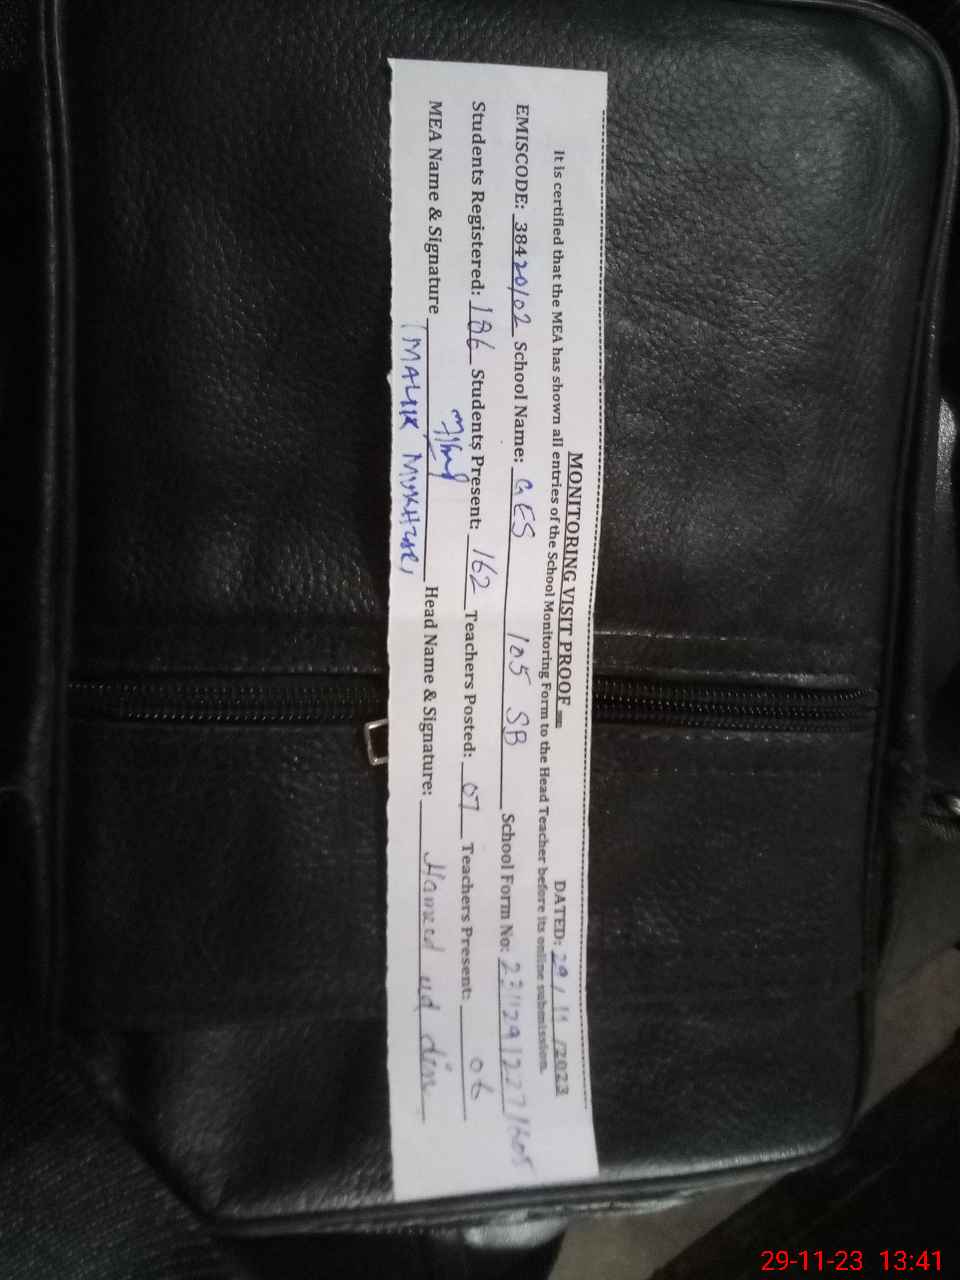 MONITORING VISIT PROOF DATED: 29/11/2023
It is certified that the MEA has shown all entries of the School Monitoring Form to the Head Teacher before its online submission.
EMISCODE: 38420102 School Name: GES 105 SB School Form No:
Students Registered: 186 Students Present: 162 Teachers Posted: 07 Teachers Present: 06
MEA Name & Signature Head Name & Signature: Hameed ud din
(MALIK
29-11-23 13:41